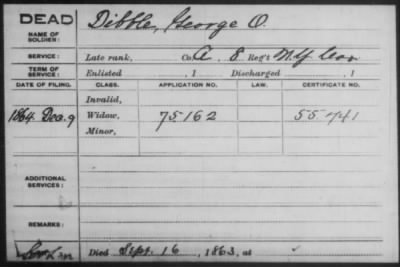 DEAD
NAME OF SOLDIER:
Dibble, George O.
SERVICE:
Late rank, Co. A. 8 Reg't N.Y. Cav
TERM OF SERVICE:
Enlisted , 1 Discharged , 1
DATE OF FILING. CLASS. APPLICATION NO. LAW. CERTIFICATE NO.
Invalid,
1864 Dec. 9 Widow, 75162 55741
Minor,
ADDITIONAL SERVICES:
REMARKS:
Died Sept. 16, 1863, at